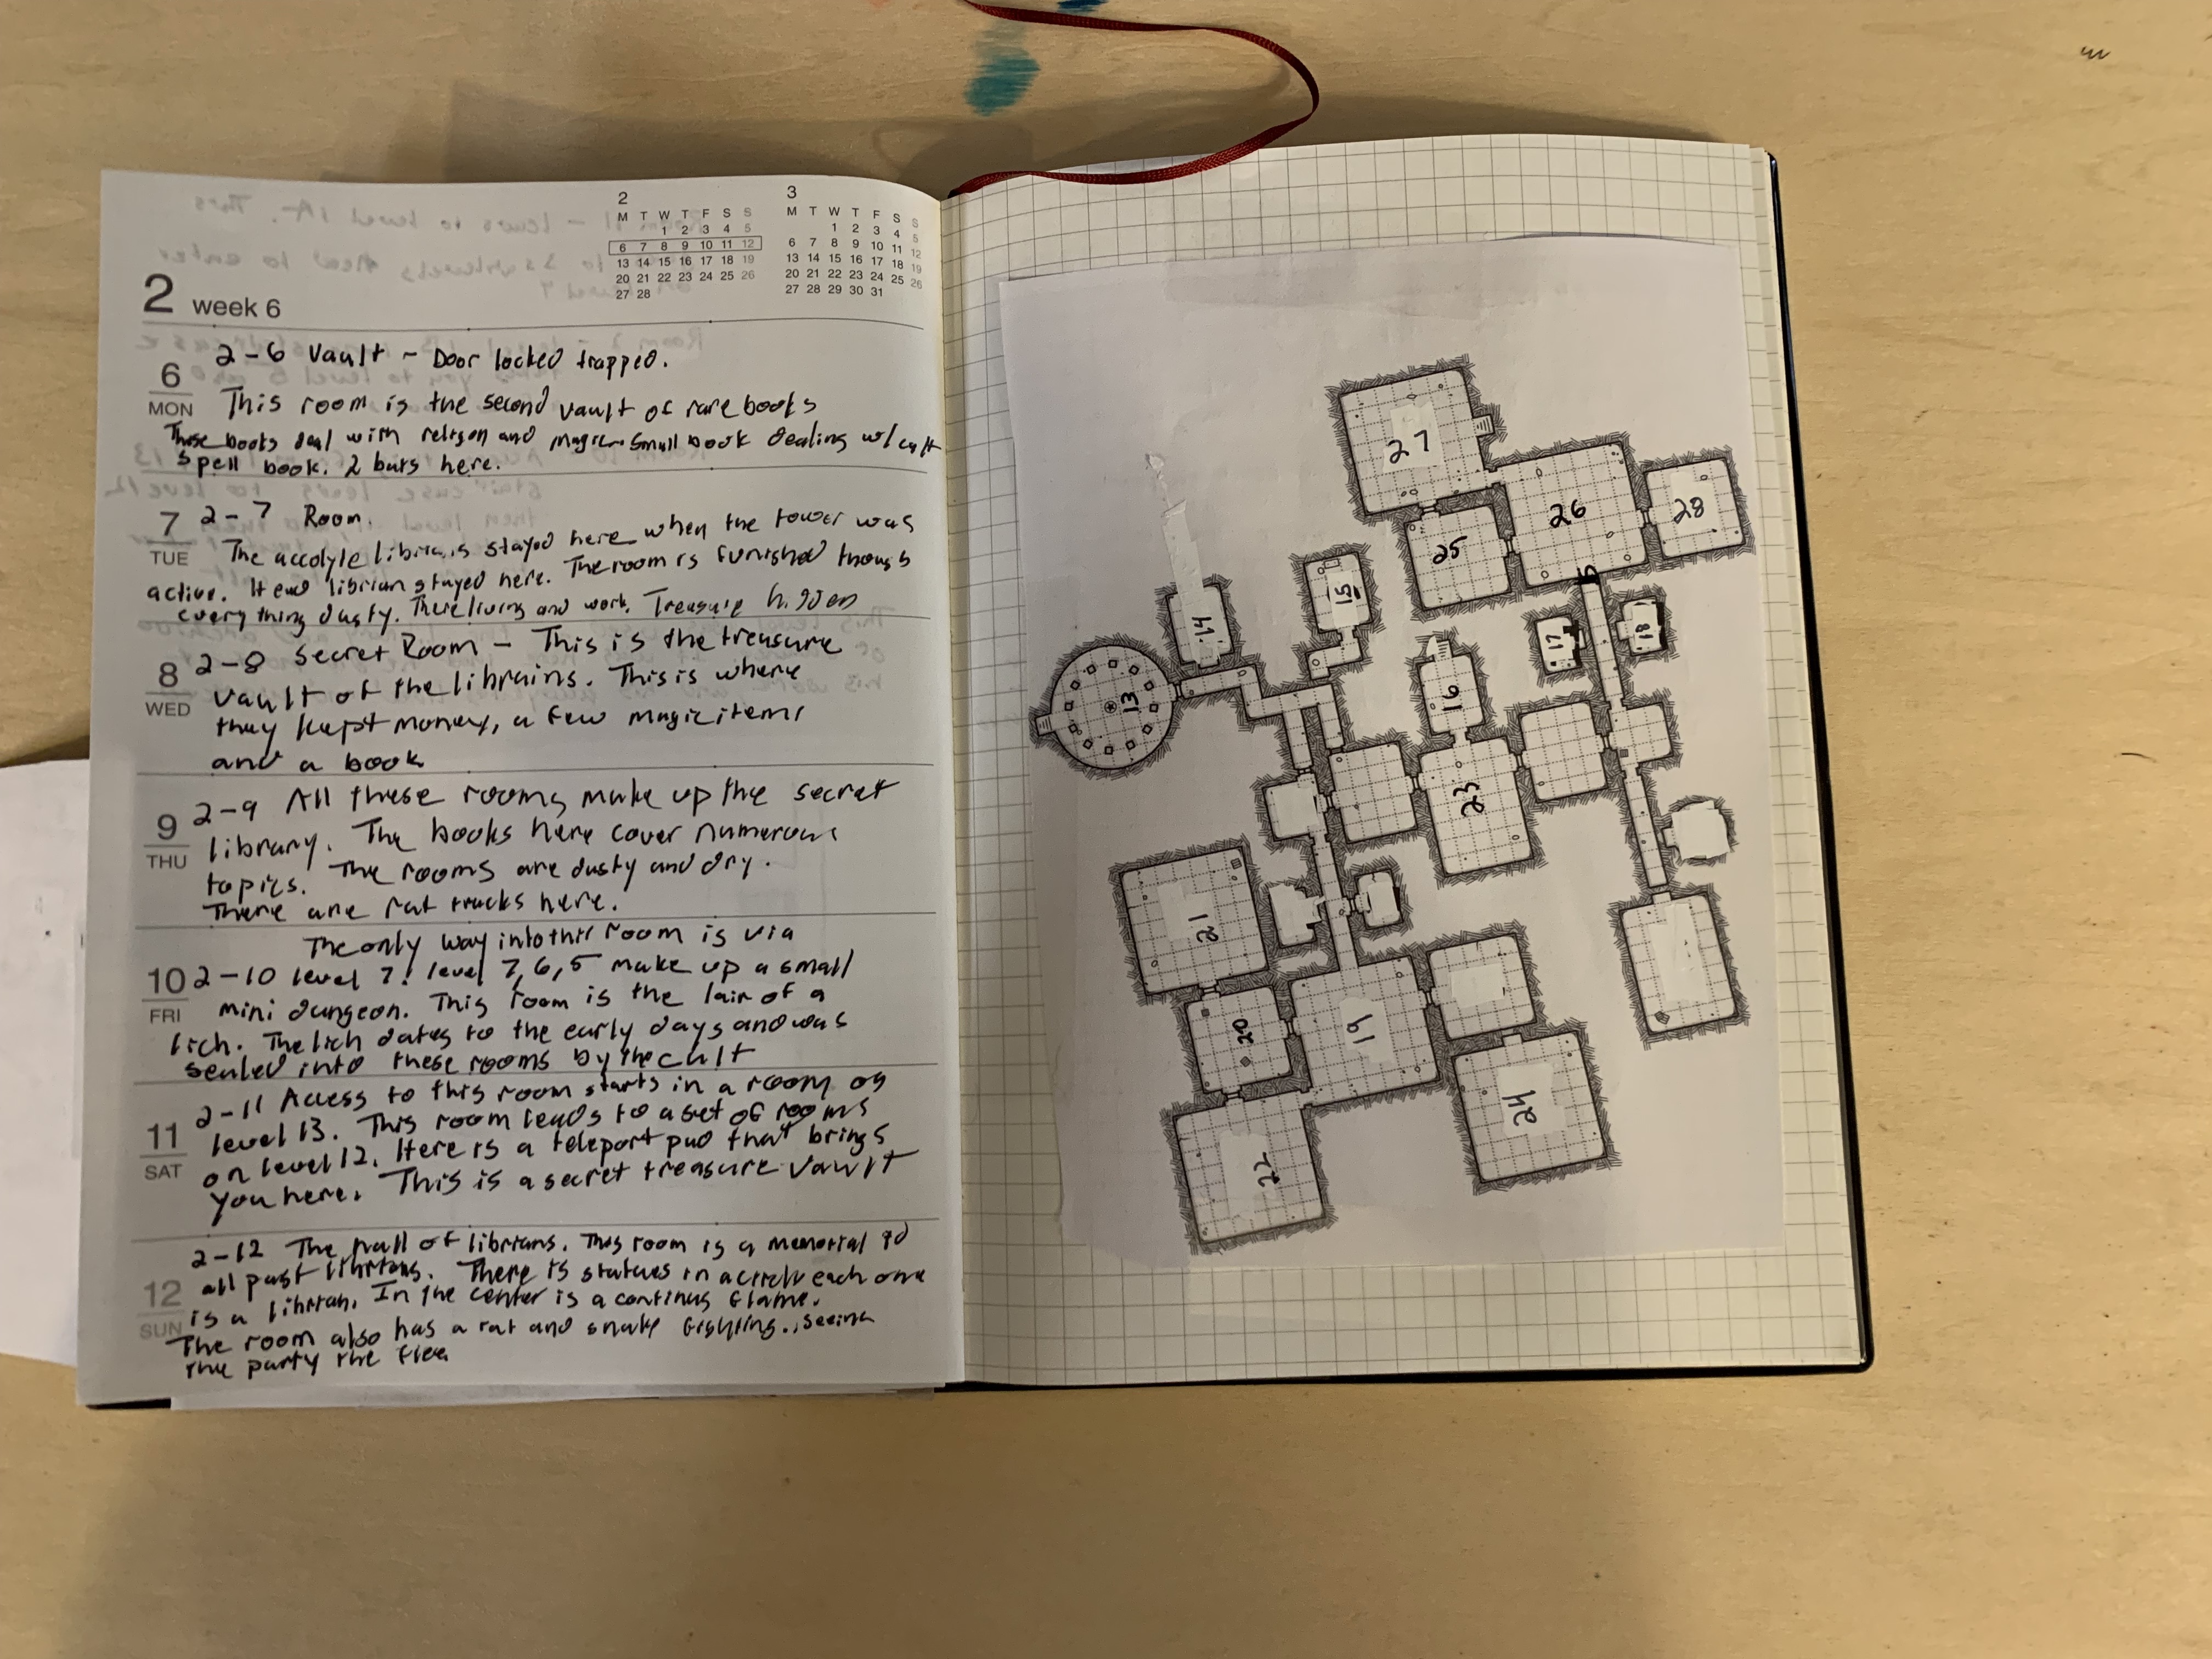 2 week 6
2
M T W T F S S
1 2 3 4 5
6 7 8 9 10 11 12
13 14 15 16 17 18 19
20 21 22 23 24 25 26
27 28
3
M T W T F S S
1 2 3 4 5
6 7 8 9 10 11 12
13 14 15 16 17 18 19
20 21 22 23 24 25 26
27 28 29 30 31
6
MON
2-6 Vault - Door locked trapped.
This room is the second vault of rare books
These books deal with religon and magic. Small book dealing w/ cult
spell book. 2 bats here.
7
TUE
2-7 Room.
The accolyte stayed here when the tower was
active. Head librian stayed here. The room is furnished though
every thing dusty. There living and work. Treasure hidden
8
WED
2-8 Secret Room - This is the treasure
vault of the librains. This is where
they kept money, a few magic items
and a book
9
THU
2-9 All these rooms make up the secret
library. The books here cover numerous
topics. The rooms are dusty and dry.
There are rat tracks here.
10
FRI
The only way into this room is via
2-10 level 7! level 7, 6, 5 make up a small
mini dungeon. This room is the lair of a
lich. The lich dates to the early days and was
sealed into these rooms by the cult
11
SAT
2-11 Access to this room starts in a room on
level 13. This room leads to a set of rooms
on level 12. Here is a teleport pad that brings
you here. This is a secret treasure vault
12
SUN
2-12 The hall of librians. This room is a memorial to
all past librians. There is statues in a circle each one
is a librian. In the center is a continus flame.
The room also has a rat and snake fighting., seeing
the party the flee
27
26
28
25
15
14
17
18
13
16
23
21
20
19
24
22